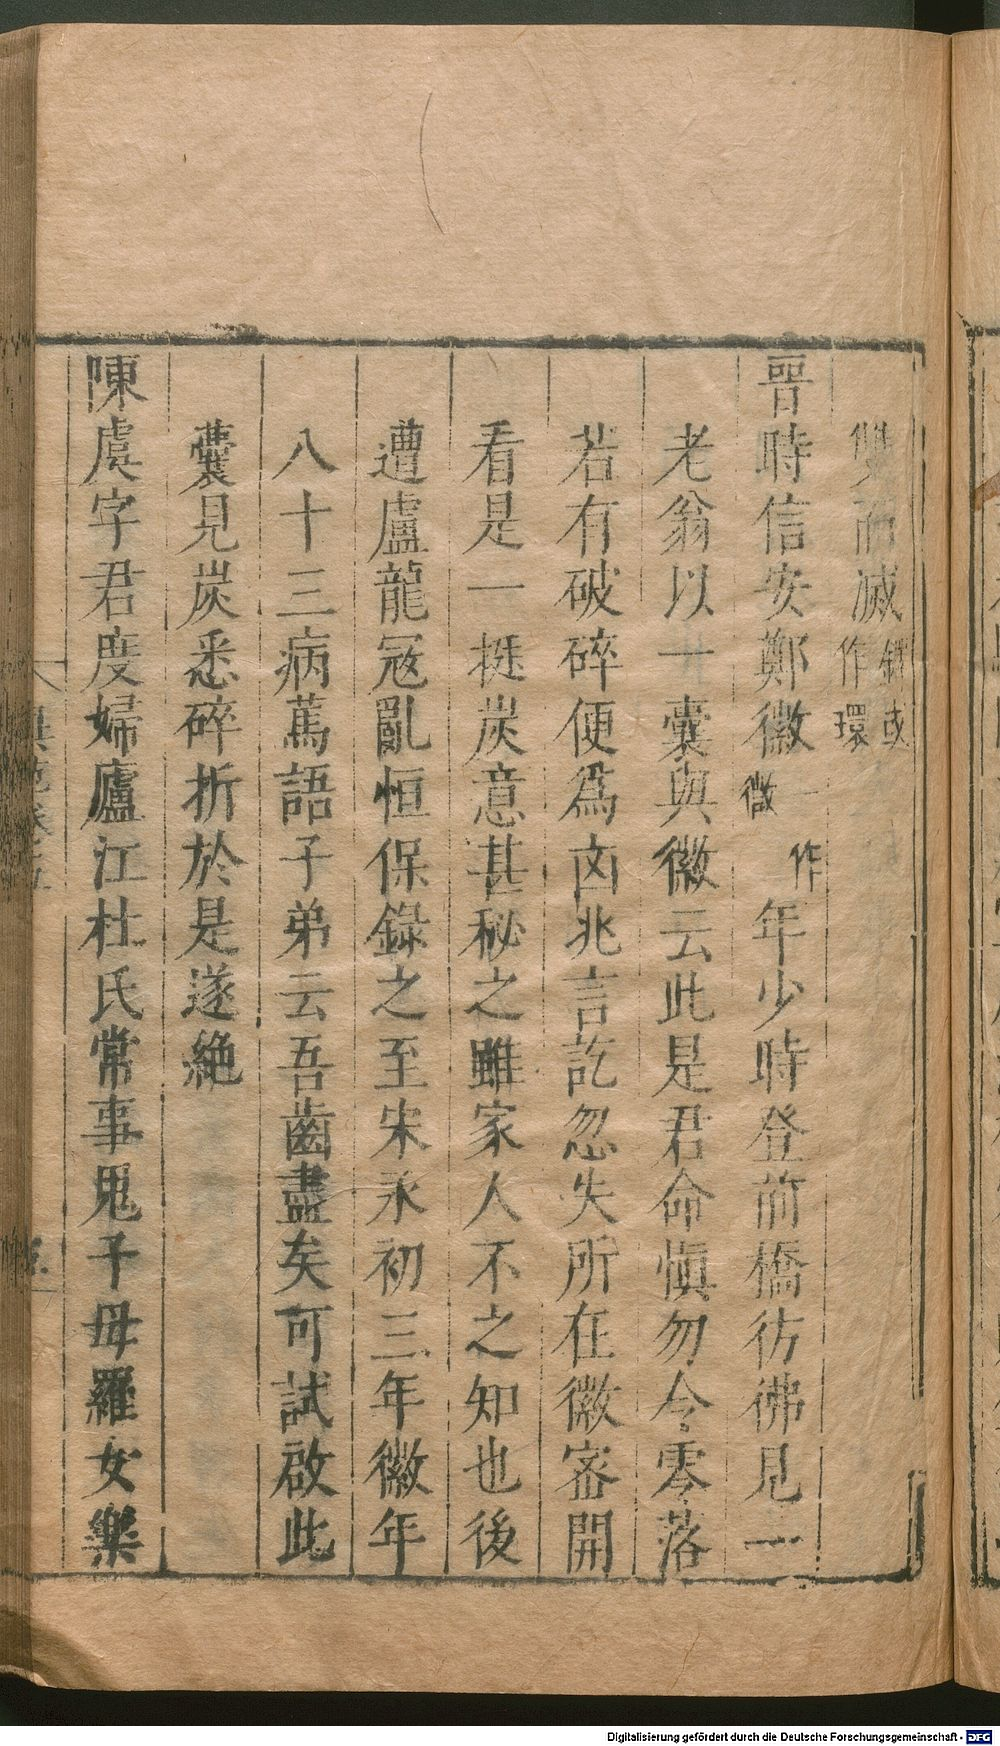 雙而滅鐶或作環
晉時信安鄭徽一作微年少時登前橋彷彿見一
老翁以一囊與徽云此是君命愼勿令零落
若有破碎便爲凶兆言訖忽失所在徽密開
看是一挺炭意甚秘之雖家人不之知也後
遭盧龍冦亂恒保錄之至宋永初三年徽年
八十三病篤語子弟云吾齒盡矣可試啟此
囊見炭悉碎折於是遂絶
陳虞字君度婦廬江杜氏常事鬼子母羅女樂
異苑卷五
Digitalisierung gefördert durch die Deutsche Forschungsgemeinschaft - DFG